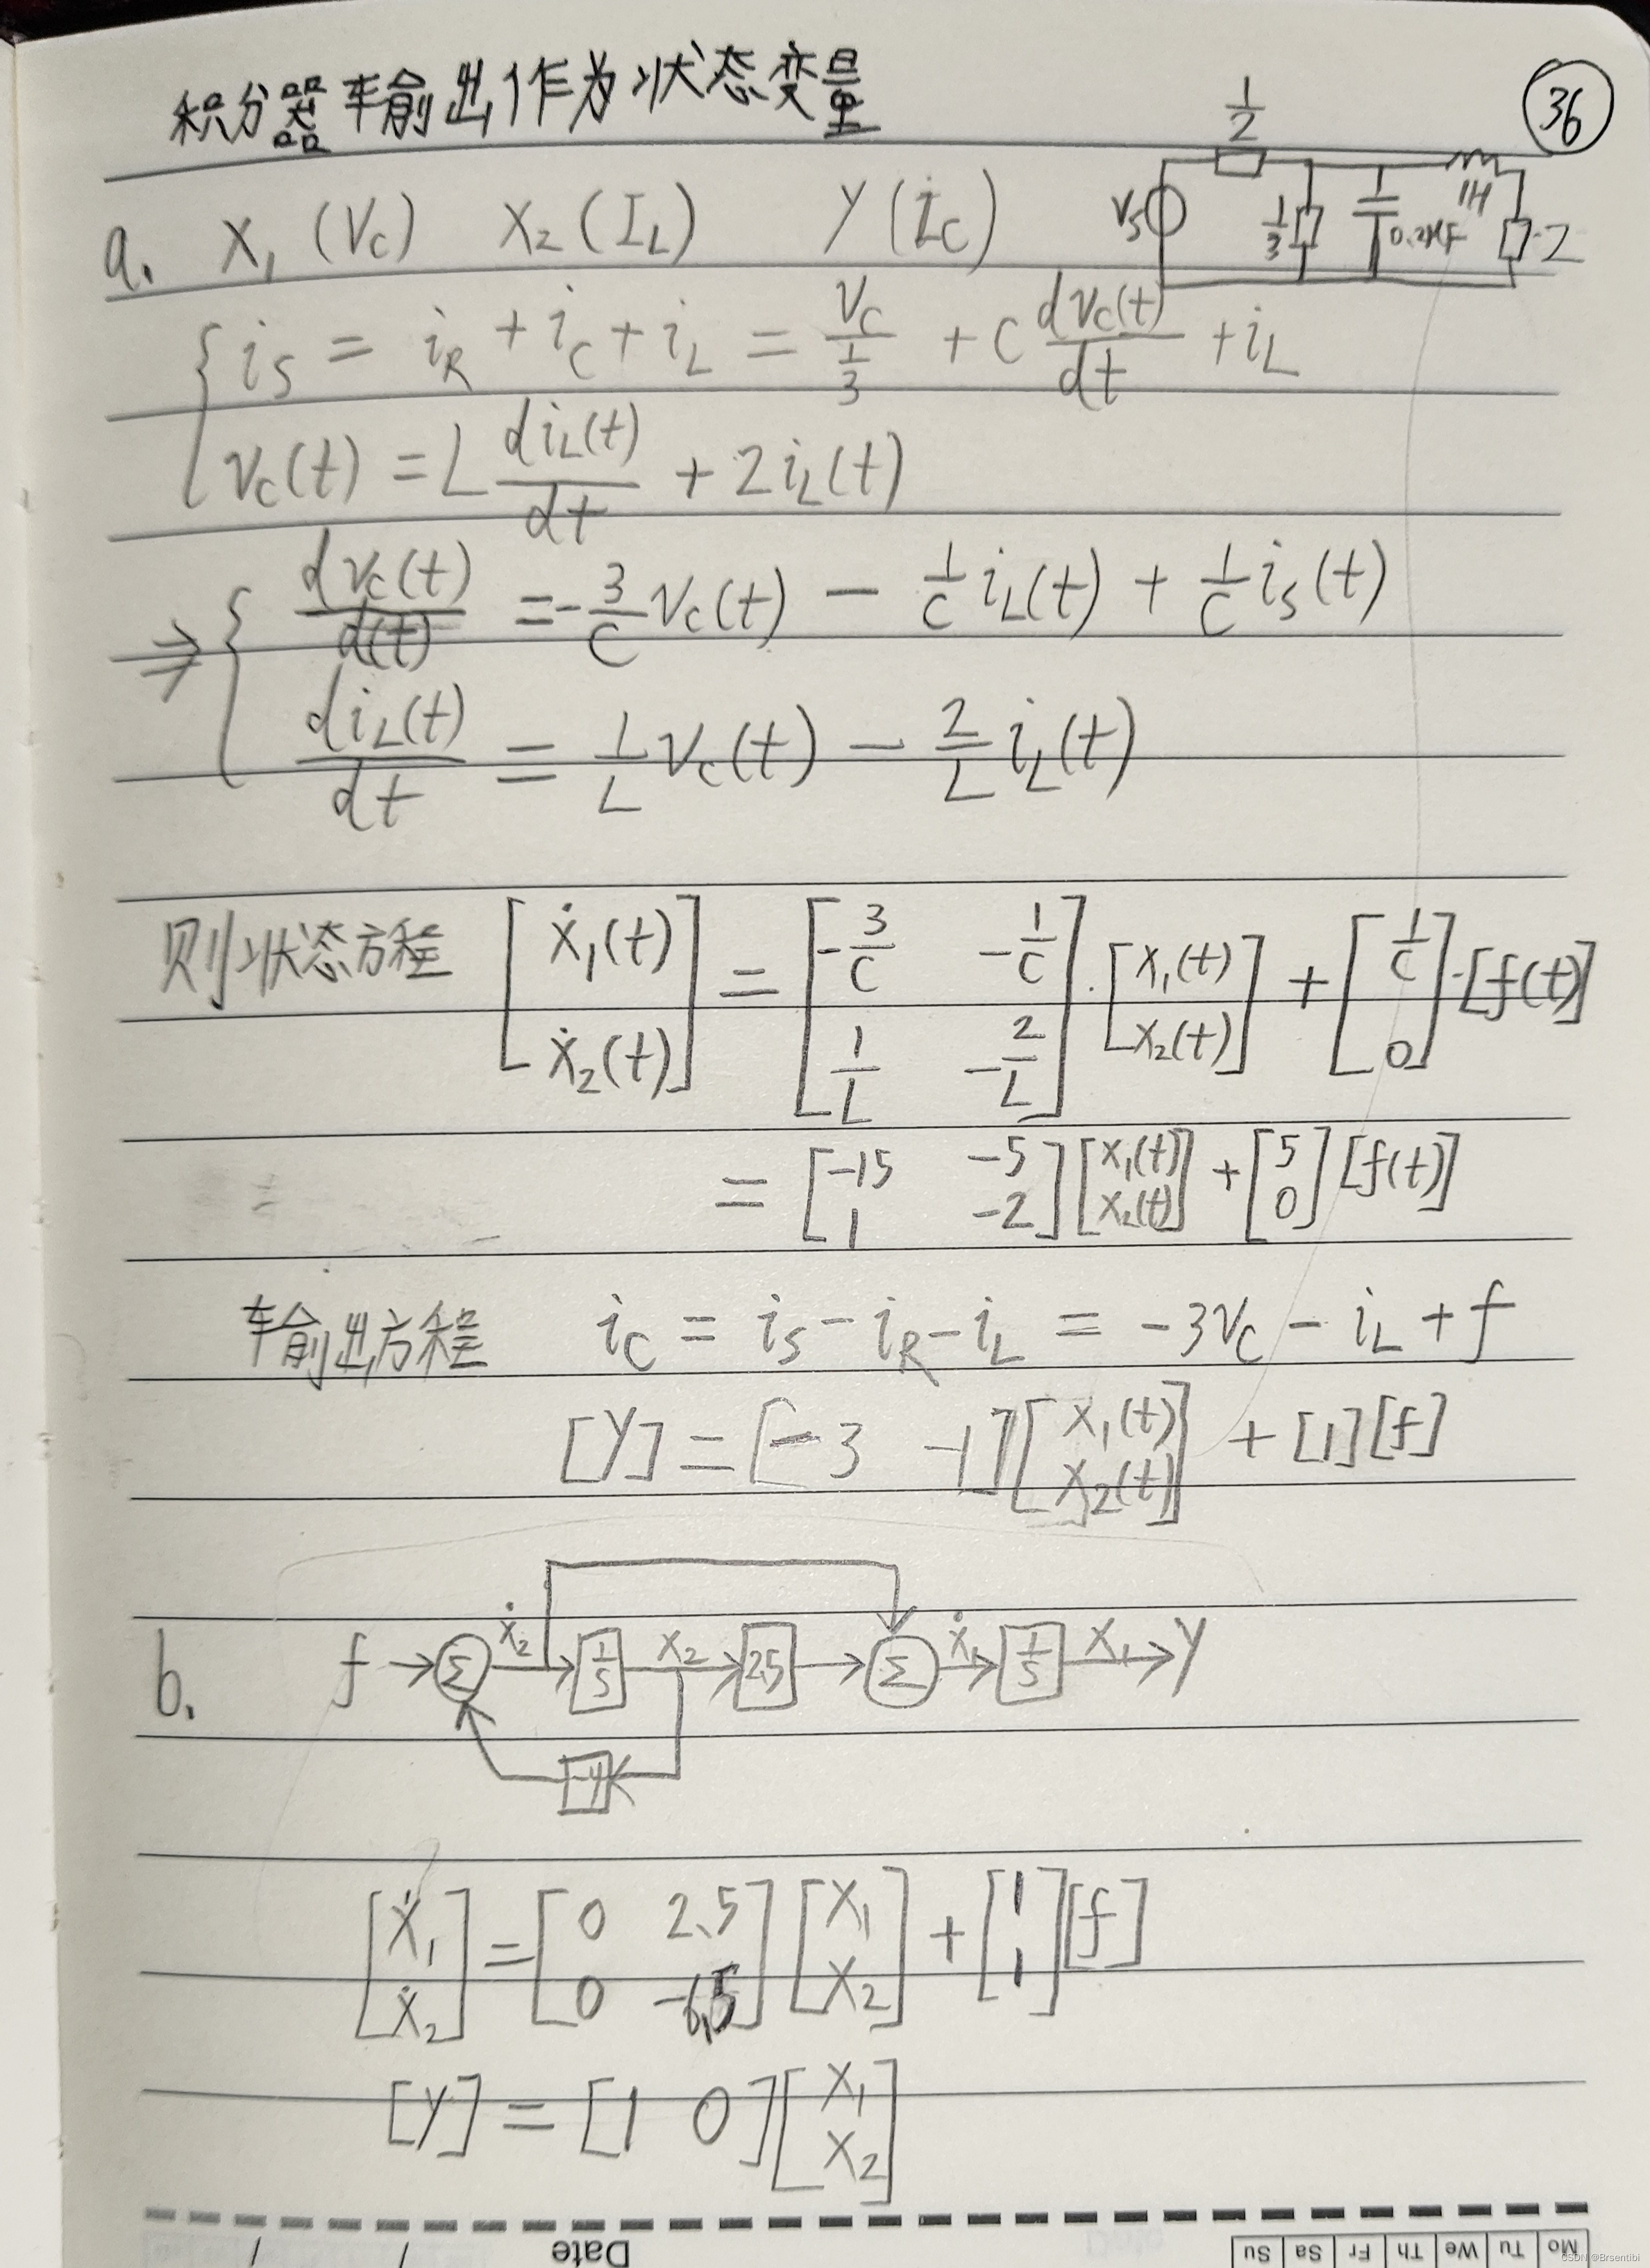 积分器输出作为状态变量
36
a. X₁ (Vc) X₂ (I_L) Y (i_C)
1/2 Vs 1/3 1H 2
{ i_S = i_R + i_C + i_L = V_C/(1/3) + C dv_C(t)/dt + i_L
v_C(t) = L di_L(t)/dt + 2i_L(t)
⇒ { dv_C(t)/d(t) = -3/C v_C(t) - 1/C i_L(t) + 1/C i_S(t)
di_L(t)/dt = 1/L v_C(t) - 2/L i_L(t)
则状态方程 [ẋ₁(t) ; ẋ₂(t)] = [-3/C -1/C ; 1/L -2/L] · [x₁(t) ; x₂(t)] + [1/C ; 0] · [f(t)]
= [-15 -5 ; 1 -2] [x₁(t) ; x₂(t)] + [5 ; 0] [f(t)]
输出方程 i_C = i_S - i_R - i_L = -3v_C - i_L + f
[Y] = [-3 -1] [x₁(t) ; x₂(t)] + [1][f]
b. f → Σ ẋ₂ 1/s x₂ 2.5 Σ ẋ₁ 1/s x₁ → y
-4
[ẋ₁ ; ẋ₂] = [0 2.5 ; 0 ] [x₁ ; x₂] + [1 ; 1] [f]
[y] = [1 0] [x₁ ; x₂]
Date
Mo Tu We Th Fr Sa Su
CSDN @Brsentibi